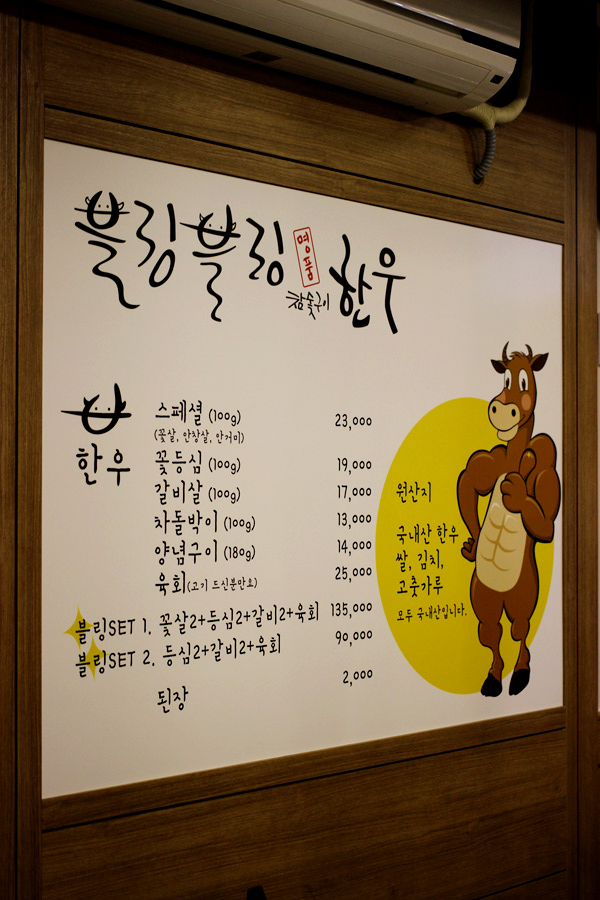 블링블링 명품 한우
참숯구이
한우
스페셜 (100g) 23,000
(꽃살, 안창살, 안거미)
꽃등심 (100g) 19,000
갈비살 (100g) 17,000
차돌박이 (100g) 13,000
양념구이 (180g) 14,000
육회(고기 드신분만요) 25,000
블링SET 1. 꽃살2+등심2+갈비2+육회 135,000
블링SET 2. 등심2+갈비2+육회 90,000
된장 2,000
원산지
국내산 한우
쌀, 김치,
고춧가루
모두 국내산입니다.